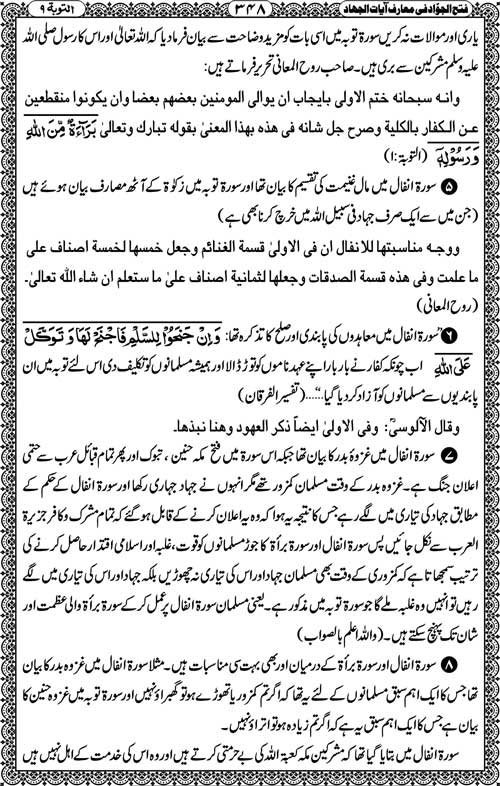 فتح الجوّاد فی معارف آیات الجہاد ۳۴۸ التوبۃ ۹
یاری اور موالات نہ کریں سورۃ توبہ میں اسی بات کو مزید وضاحت سے بیان فرمادیا کہ اللہ تعالیٰ اور اس کا رسول صلی اللہ
علیہ وسلم مشرکین سے بری ہیں۔ صاحب روح المعانی تحریر فرماتے ہیں:
وانہ سبحانہ ختم الاولی بایجاب ان یوالی المومنین بعضھم بعضا وان یکونوا منقطعین
عن الکفار بالکلیۃ وصرح جل شانہ فی ھذہ بھذا المعنیٰ بقولہ تبارک وتعالیٰ بَرَآءَةٌ مِّنَ اللّٰهِ
وَرَسُوْلِهٖ (التوبۃ:۱)
۵ سورۃ انفال میں مال غنیمت کی تقسیم کا بیان تھا اور سورۃ توبہ میں زکوٰۃ کے آٹھ مصارف بیان ہوئے ہیں
(جن میں سے ایک صرف جہاد فی سبیل اللہ میں خرچ کرنا بھی ہے)
ووجہ مناسبتھا للانفال ان فی الاولیٰ قسمۃ الغنائم وجعل خمسھا لخمسۃ اصناف علی
ما علمت وفی ھذہ قسمۃ الصدقات وجعلھا لثمانیۃ اصناف علیٰ ما ستعلم ان شاء اللہ تعالیٰ۔
(روح المعانی)
۶ "سورۃ انفال میں معاہدوں کی پابندی اور صلح کا تذکرہ تھا: وَاِنْ جَنَحُوْا لِلسَّلْمِ فَاجْنَحْ لَهَا وَ تَوَكَّلْ
عَلَى اللّٰهِ اب چونکہ کفار نے بار بار اپنے عہد ناموں کو توڑ ڈالا اور ہمیشہ مسلمانوں کو تکلیف دی اس لئے توبہ میں ان
پابندیوں سے مسلمانوں کو آزاد کر دیا گیا....."(تفسیر الفرقان)
وقال الآلوسیؒ: وفی الاولیٰ ایضاً ذکر العھود وھنا نبذھا۔
۷ سورۃ انفال میں غزوہ بدر کا بیان تھا جبکہ اس سورۃ میں فتح مکہ حنین، تبوک اور پھر تمام قبائل عرب سے حتمی
اعلان جنگ ہے۔ غزوہ بدر کے وقت مسلمان کمزور تھے مگر انہوں نے جہاد جہاری رکھا اور سورۃ انفال کے حکم کے
مطابق جہاد کی تیاری میں لگے رہے جس کا نتیجہ یہ ہوا کہ وہ یہ اعلان کرنے کے قابل ہو گئے کہ تمام مشرک و کافر جزیرۃ
العرب سے نکل جائیں پس سورۃ انفال اور سورۃ براءۃ کا جوڑ مسلمانوں کو قوت، غلبہ اور اسلامی اقتدار حاصل کرنے کی
ترتیب سمجھاتا ہے کہ کمزوری کے وقت بھی مسلمان جہاد اور اس کی تیاری نہ چھوڑیں بلکہ جہاد اور اس کی تیاری میں لگے
رہیں تو انہیں وہ غلبہ ملے گا جو سورۃ توبہ میں مذکور ہے۔ یعنی مسلمان سورۃ انفال پر عمل کر کے سورۃ براءۃ والی عظمت اور
شان تک پہنچ سکتے ہیں۔ (واللہ اعلم بالصواب)
۸ سورۃ انفال اور سورۃ براءۃ کے درمیان اور بھی بہت سی مناسبات ہیں۔ مثلا سورۃ انفال میں غزوہ بدر کا بیان
تھا جس کا ایک اہم سبق مسلمانوں کے لئے یہ تھا کہ اگر تم کمزور یا تھوڑے ہو تو گھبراؤ نہیں اور سورۃ توبہ میں غزوہ حنین کا
بیان ہے جس کا ایک اہم سبق یہ ہے کہ اگر تم زیادہ ہو تو اتراؤ نہیں۔
سورۃ انفال میں بتایا گیا تھا کہ مشرکین مکہ کعبۃ اللہ کی بے حرمتی کرتے ہیں اور وہ اس کی خدمت کے اہل نہیں ہیں